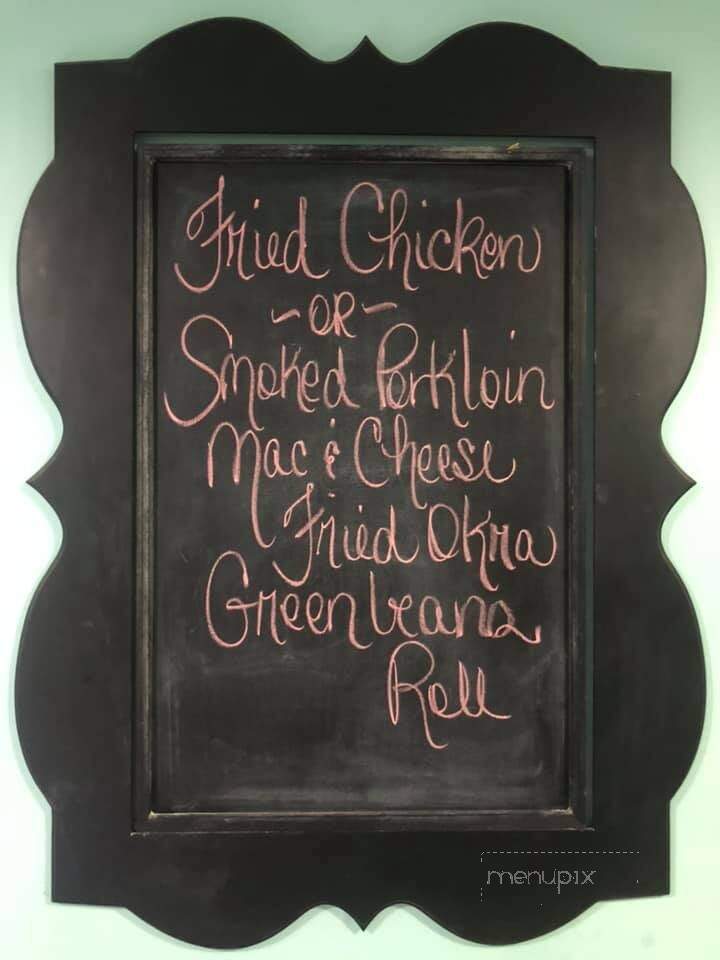 Fried Chicken
~OR~
Smoked Porkloin
Mac & Cheese
Fried Okra
Greenbeans
Roll
menupix